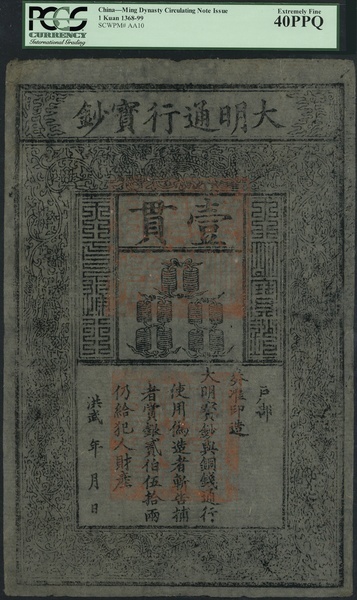 PCGS
CURRENCY
International Grading
China—Ming Dynasty Circulating Note Issue
1 Kuan 1368-99
SCWPM# AA10
Extremely Fine
40PPQ
大明通行寶鈔
壹貫
戶部
奏准印造
大明寶鈔與銅錢通行
使用偽造者斬告捕
者賞銀貳伯伍拾兩
仍給犯人財產
洪武 年 月 日